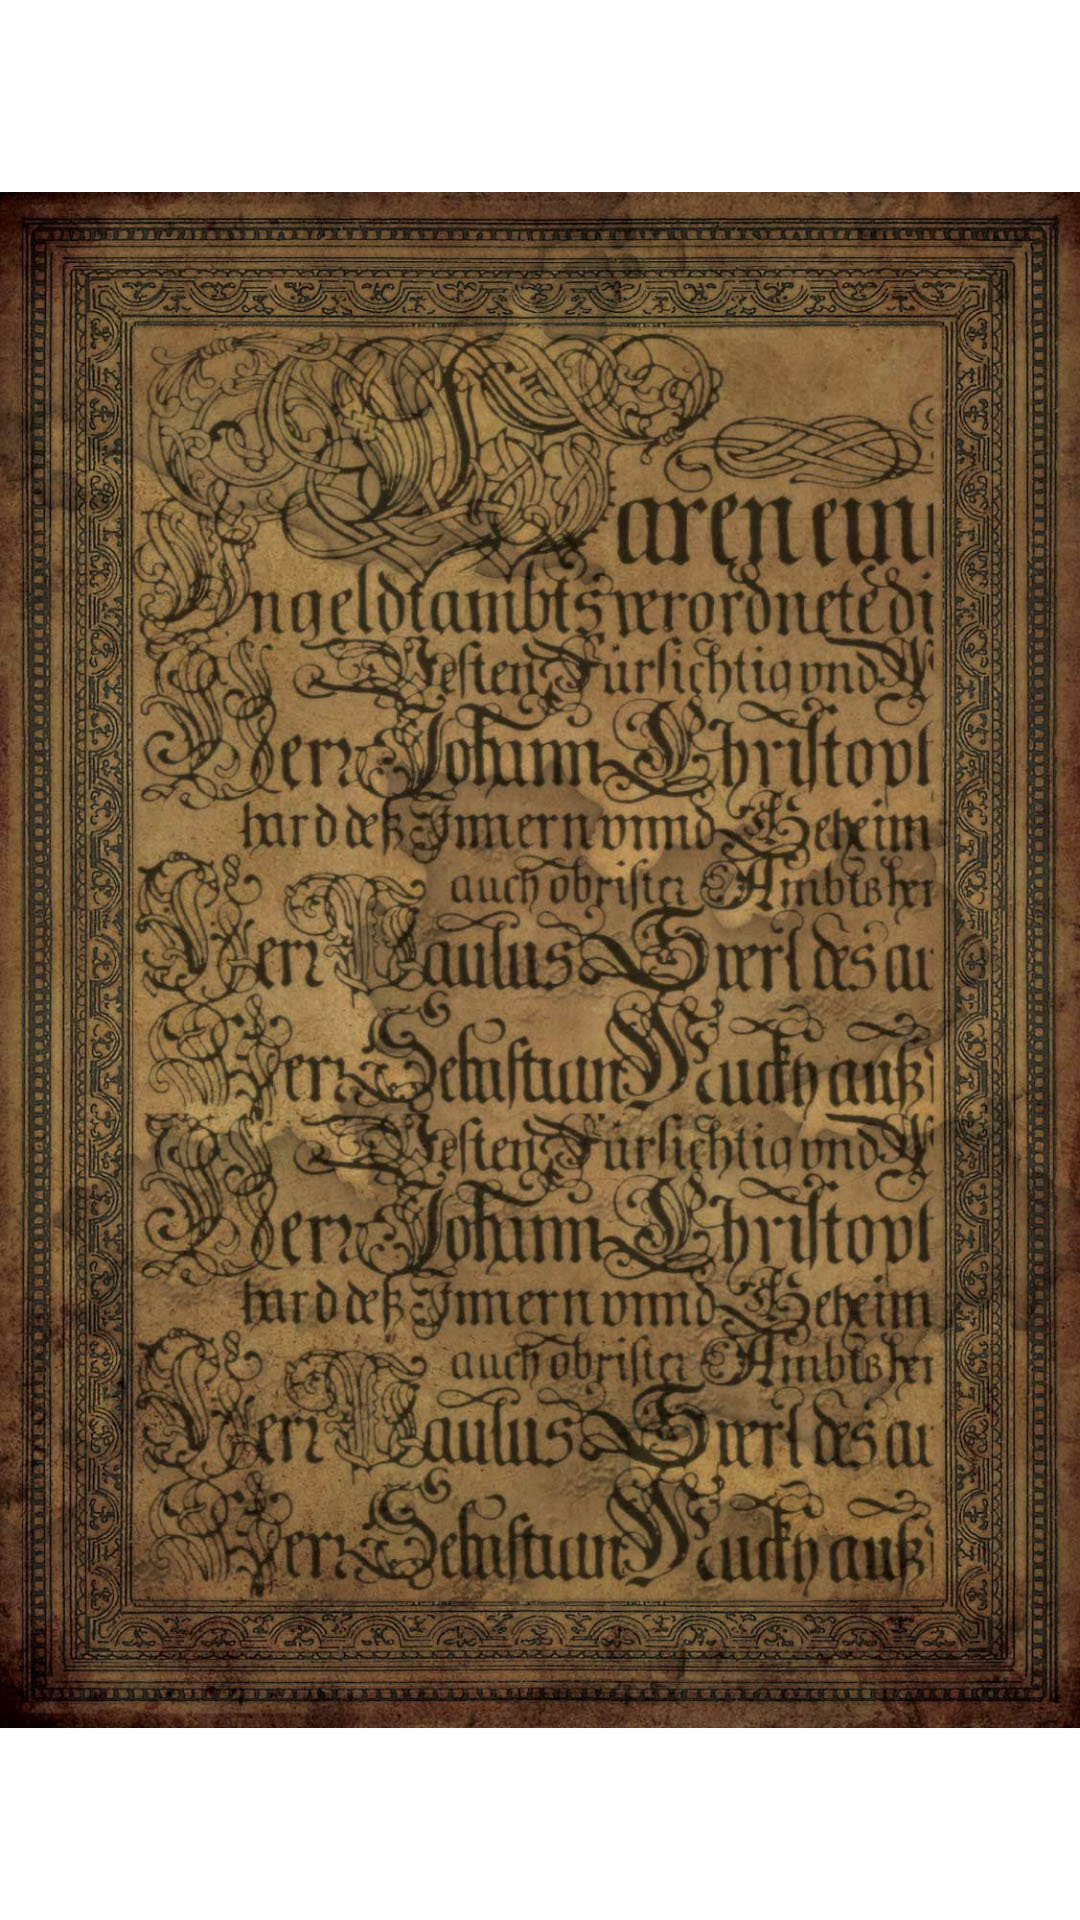 Waren einu
Ungeldtambts verordnete di
Vesten Fürsichtig vnd W
Herr Johann Christoph
hard deß Innern vnnd Geheim
auch obrister Ambtsher
Herr Paulus des
Herr Sebastian auß
Vesten Fürsichtig vnd W
Herr Johann Christoph
hard deß Innern vnnd Geheim
auch obrister Ambtsher
Herr Paulus des
Herr Sebastian auß